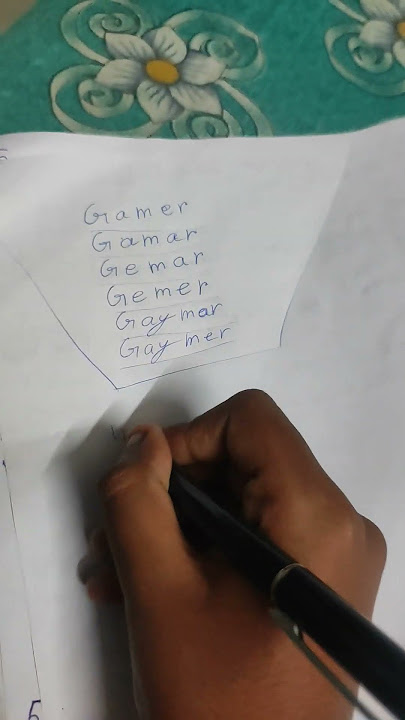 Gamer
Gamar
Gemar
Gemer
Gaymar
Gaymer
5